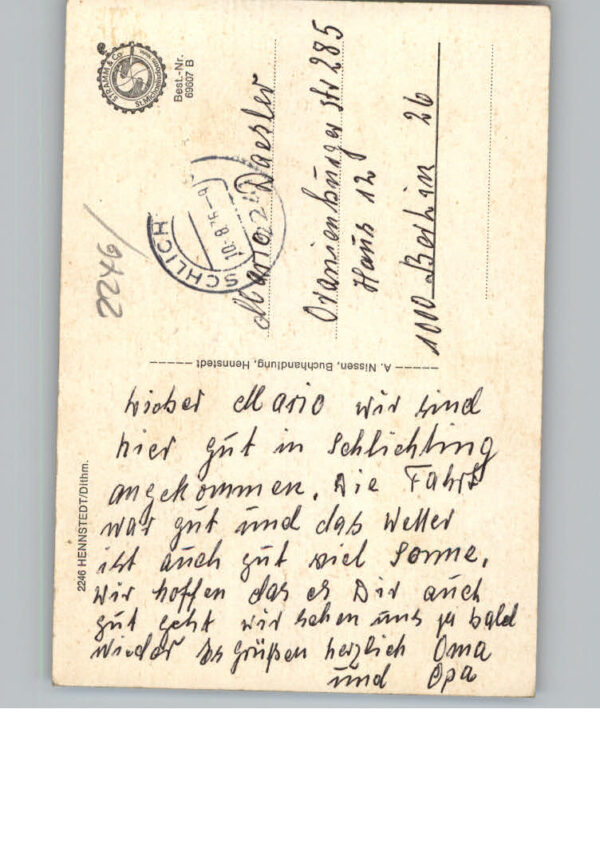 STRAMM & Co.
St. Michaelisdonn
Best.-Nr.
69607 B
SCHLICH
10.-8.76.-9
Mario Daesler
Oranienburger Str 285
Haus 12
1000 Berlin 26
9X22
A. Nissen, Buchhandlung, Hennstedt
2246 HENNSTEDT/Dithm.
Lieber Mario wir sind
hier gut in Schlichting
angekommen. Die Fahrt
war gut und das Wetter
ist auch gut viel Sonne.
Wir hoffen das es Dir auch
gut geht wir sehen uns ja bald
wieder Es grüßen herzlich Oma
und Opa